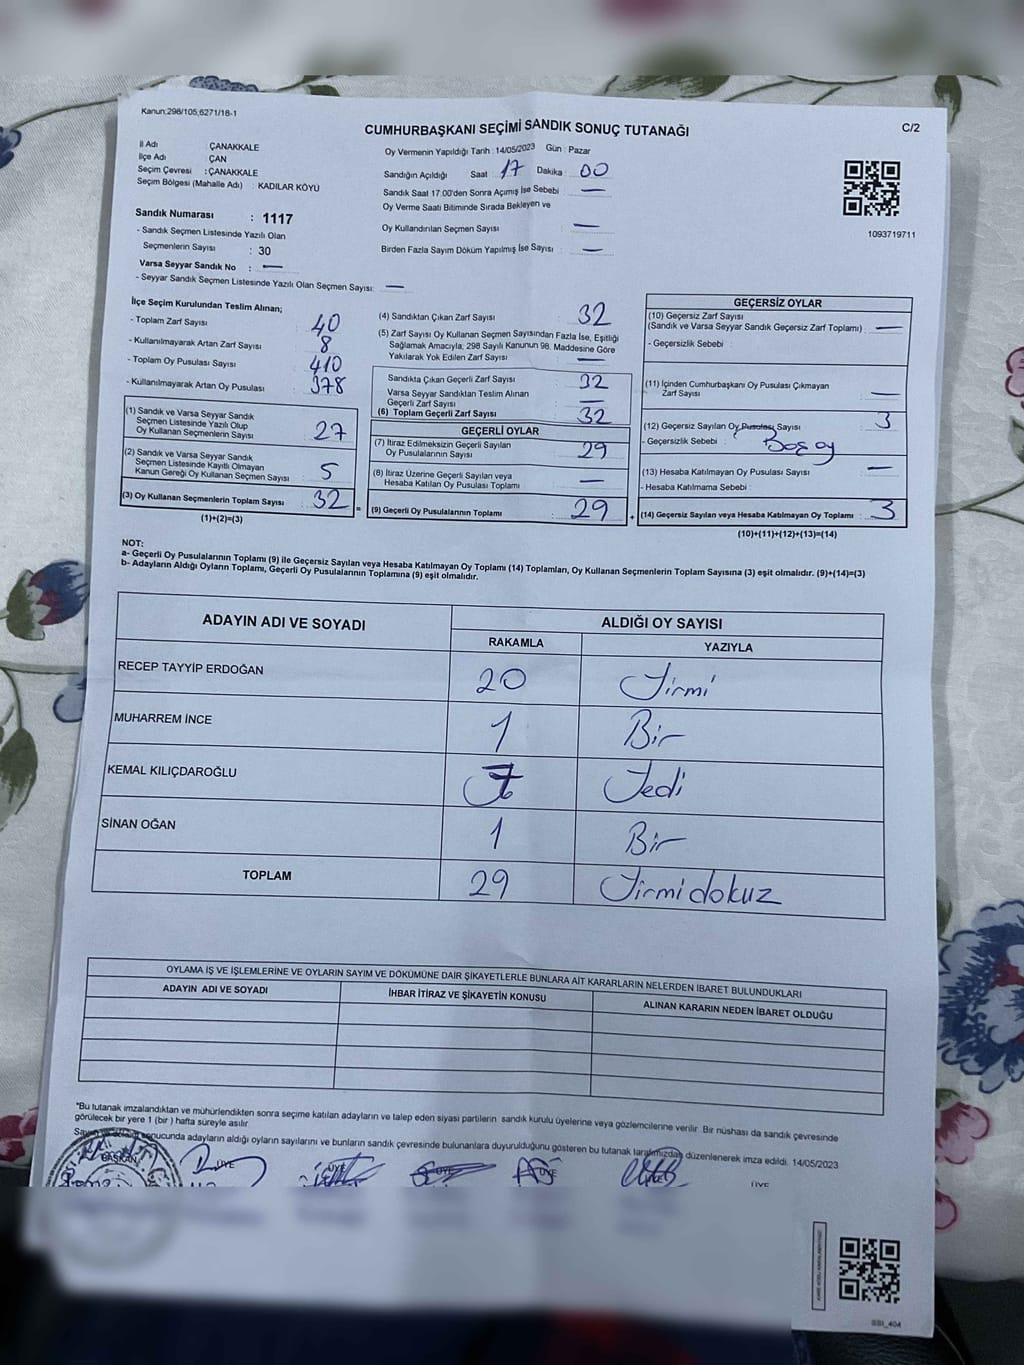 Kanun:298/105,6271/18-1
CUMHURBAŞKANI SEÇİMİ SANDIK SONUÇ TUTANAĞI
C/2
İl Adı : ÇANAKKALE
İlçe Adı : ÇAN
Seçim Çevresi : ÇANAKKALE
Seçim Bölgesi (Mahalle Adı) : KADILAR KÖYÜ
Sandık Numarası : 1117
- Sandık Seçmen Listesinde Yazılı Olan
Seçmenlerin Sayısı : 30
Varsa Seyyar Sandık No : —
- Seyyar Sandık Seçmen Listesinde Yazılı Olan Seçmen Sayısı: —
Oy Vermenin Yapıldığı Tarih : 14/05/2023 Gün : Pazar
Sandığın Açıldığı Saat 17 Dakika : 00
Sandık Saat 17.00'den Sonra Açımış İse Sebebi : —
Oy Verme Saati Bitiminde Sırada Bekleyen ve
Oy Kullandırılan Seçmen Sayısı : —
Birden Fazla Sayım Döküm Yapılmış İse Sayısı : —
1093719711
İlçe Seçim Kurulundan Teslim Alınan;
- Toplam Zarf Sayısı : 40
- Kullanılmayarak Artan Zarf Sayısı : 8
- Toplam Oy Pusulası Sayısı : 410
- Kullanılmayarak Artan Oy Pusulası : 378
(1) Sandık ve Varsa Seyyar Sandık
Seçmen Listesinde Yazılı Olup
Oy Kullanan Seçmenlerin Sayısı : 27
(2) Sandık ve Varsa Seyyar Sandık
Seçmen Listesinde Kayıtlı Olmayan
Kanun Gereği Oy Kullanan Seçmen Sayısı : 5
(3) Oy Kullanan Seçmenlerin Toplam Sayısı : 32
(1)+(2)=(3)
(4) Sandıktan Çıkan Zarf Sayısı : 32
(5) Zarf Sayısı Oy Kullanan Seçmen Sayısından Fazla İse, Eşitliği
Sağlamak Amacıyla; 298 Sayılı Kanunun 98. Maddesine Göre
Yakılarak Yok Edilen Zarf Sayısı : —
Sandıkta Çıkan Geçerli Zarf Sayısı : 32
Varsa Seyyar Sandıktan Teslim Alınan
Geçerli Zarf Sayısı : —
(6) Toplam Geçerli Zarf Sayısı : 32
GEÇERLİ OYLAR
(7) İtiraz Edilmeksizin Geçerli Sayılan
Oy Pusulalarının Sayısı : 29
(8) İtiraz Üzerine Geçerli Sayılan veya
Hesaba Katılan Oy Pusulası Toplamı : —
= (9) Geçerli Oy Pusulalarının Toplamı : 29
GEÇERSİZ OYLAR
(10) Geçersiz Zarf Sayısı
(Sandık ve Varsa Seyyar Sandık Geçersiz Zarf Toplamı) : —
- Geçersizlik Sebebi :
(11) İçinden Cumhurbaşkanı Oy Pusulası Çıkmayan
Zarf Sayısı : —
(12) Geçersiz Sayılan Oy Pusulası Sayısı : 3
- Geçersizlik Sebebi : Boş oy
(13) Hesaba Katılmayan Oy Pusulası Sayısı : —
- Hesaba Katılmama Sebebi :
+ (14) Geçersiz Sayılan veya Hesaba Katılmayan Oy Toplamı : 3
(10)+(11)+(12)+(13)=(14)
NOT:
a- Geçerli Oy Pusulalarının Toplamı (9) ile Geçersiz Sayılan veya Hesaba Katılmayan Oy Toplamı (14) Toplamları, Oy Kullanan Seçmenlerin Toplam Sayısına (3) eşit olmalıdır. (9)+(14)=(3)
b- Adayların Aldığı Oyların Toplamı, Geçerli Oy Pusulalarının Toplamına (9) eşit olmalıdır.
ADAYIN ADI VE SOYADI
ALDIĞI OY SAYISI
RAKAMLA YAZIYLA
RECEP TAYYİP ERDOĞAN 20 Yirmi
MUHARREM İNCE 1 Bir
KEMAL KILIÇDAROĞLU 7 Yedi
SİNAN OĞAN 1 Bir
TOPLAM 29 Yirmidokuz
OYLAMA İŞ VE İŞLEMLERİNE VE OYLARIN SAYIM VE DÖKÜMÜNE DAİR ŞİKAYETLERLE BUNLARA AİT KARARLARIN NELERDEN İBARET BULUNDUKLARI
ADAYIN ADI VE SOYADI İHBAR İTİRAZ VE ŞİKAYETİN KONUSU ALINAN KARARIN NEDEN İBARET OLDUĞU
*Bu tutanak imzalandıktan ve mühürlendikten sonra seçime katılan adayların ve talep eden siyasi partilerin sandık kurulu üyelerine veya gözlemcilerine verilir. Bir nüshası da sandık çevresinde
görülecek bir yere 1 (bir) hafta süreyle asılır.
sonucunda adayların aldığı oyların sayılarını ve bunların sandık çevresinde bulunanlara duyurulduğunu gösteren bu tutanak tarafımızdan düzenlenerek imza edildi. 14/05/2023
BAŞKAN ÜYE ÜYE ÜYE ÜYE ÜYE ÜYE